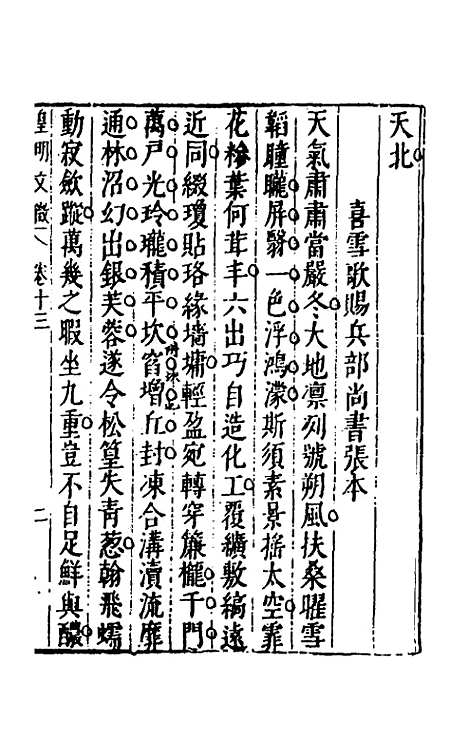 天北
喜雪歌賜兵部尚書張本
天氣肅肅當嚴冬大地凛冽號朔風扶桑曜雪
韜曈曨屏翳一色浮鴻濛斯須素景搖太空霏
花糝葉何茸丰六出巧自造化工覆纊敷縞遠
近同綴瓊貼珞緣墻墉輕盈宛轉穿簾櫳千門
萬戸光玲瓏積平坎窞增丘封凍合溝瀆流靡
通林沼幻出銀芙蓉遂令松篁失青葱翰飛蠕
動寂斂蹤萬幾之暇坐九重豈不自足鮮與醲
皇明文徵 卷十三 二